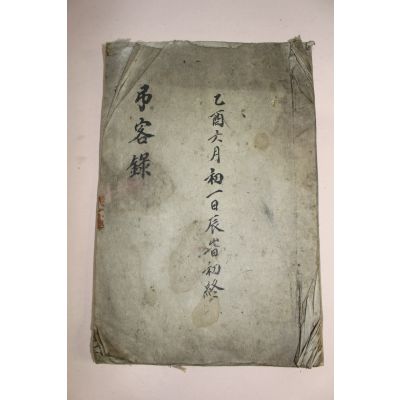 乙酉六月初一日辰旹初終
吊客錄